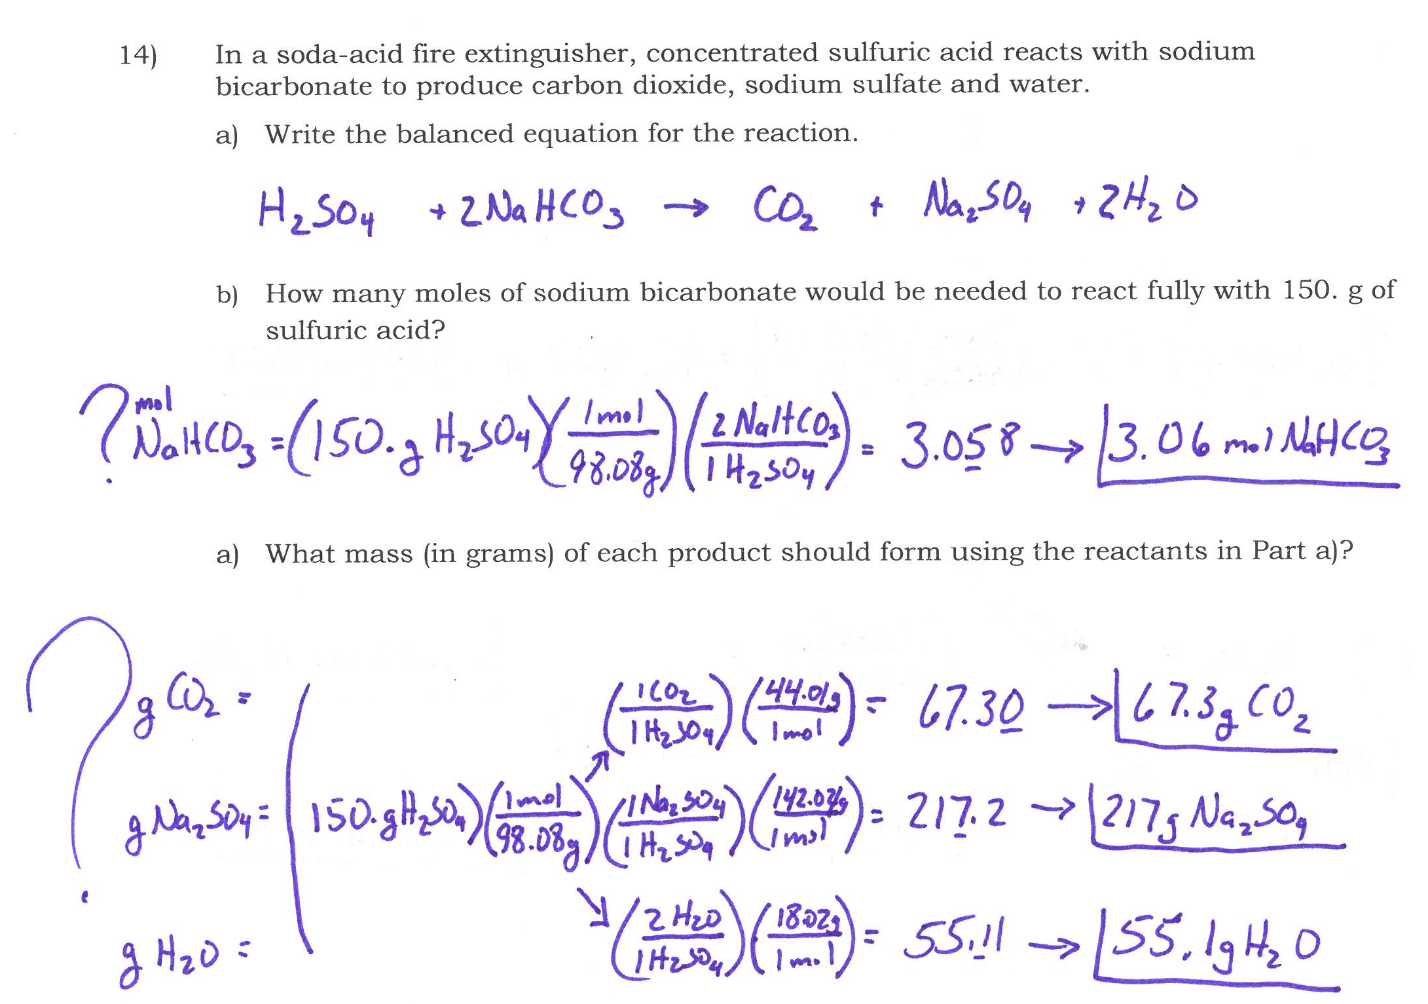 14) In a soda-acid fire extinguisher, concentrated sulfuric acid reacts with sodium
bicarbonate to produce carbon dioxide, sodium sulfate and water.
a) Write the balanced equation for the reaction.
H₂SO₄ + 2NaHCO₃ → CO₂ + Na₂SO₄ + 2H₂O
b) How many moles of sodium bicarbonate would be needed to react fully with 150. g of
sulfuric acid?
? mol NaHCO₃ = (150. g H₂SO₄)(1 mol / 98.08g)(2 NaHCO₃ / 1 H₂SO₄) = 3.058 → 3.06 mol NaHCO₃
a) What mass (in grams) of each product should form using the reactants in Part a)?
? g CO₂ = (1 CO₂ / 1 H₂SO₄)(44.01g / 1 mol) = 67.30 → 67.3g CO₂
g Na₂SO₄ = (150. g H₂SO₄)(1 mol / 98.08g)(1 Na₂SO₄ / 1 H₂SO₄)(142.04g / 1 mol) = 217.2 → 217g Na₂SO₄
g H₂O = (2 H₂O / 1 H₂SO₄)(18.02g / 1 mol) = 55.11 → 55.1g H₂O